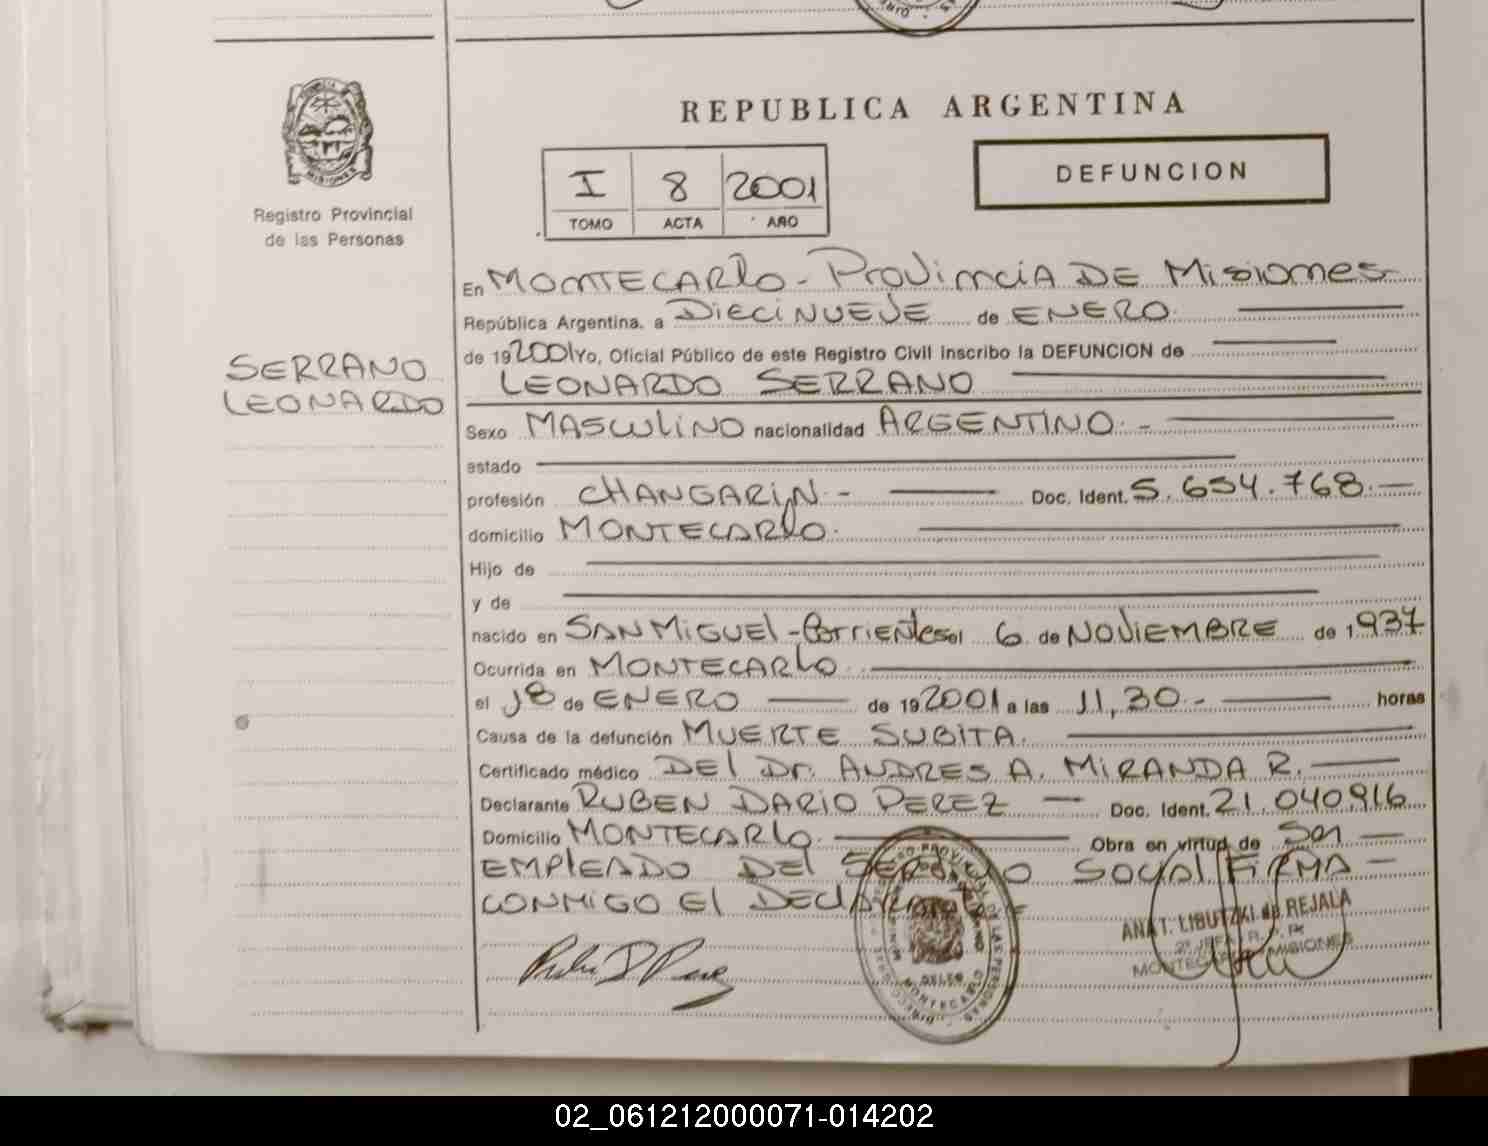 REPUBLICA ARGENTINA
DEFUNCION
I 8 2001
TOMO ACTA AÑO
MISIONES
Registro Provincial
de las Personas
SERRANO
LEONARDO
En MONTECARLO - PROVINCIA DE MISIONES
República Argentina, a DIECINUEVE de ENERO
de 19 2001 Yo, Oficial Público de este Registro Civil inscribo la DEFUNCION de
LEONARDO SERRANO
Sexo MASCULINO nacionalidad ARGENTINO.-
estado
profesión CHANGARIN.- Doc. Ident. 5.654.768.-
domicilio MONTECARLO.
Hijo de
y de
nacido en SAN MIGUEL - CORRIENTES el 6 de NOVIEMBRE de 1.937
Ocurrida en MONTECARLO.
el 18 de ENERO de 19 2001 a las 11,30.- horas
Causa de la defunción MUERTE SUBITA.
Certificado médico DEL Dr. ANDRES A. MIRANDA R.
Declarante RUBEN DARIO PEREZ Doc. Ident. 21.040.916
Domicilio MONTECARLO. Obra en virtud de SER
EMPLEADO DEL SERVICIO SOCIAL FIRMA
CONMIGO EL DECLARANTE
ANA T. LIBUTZKI de REJALA
MONTECARLO MISIONES
02_061212000071-014202